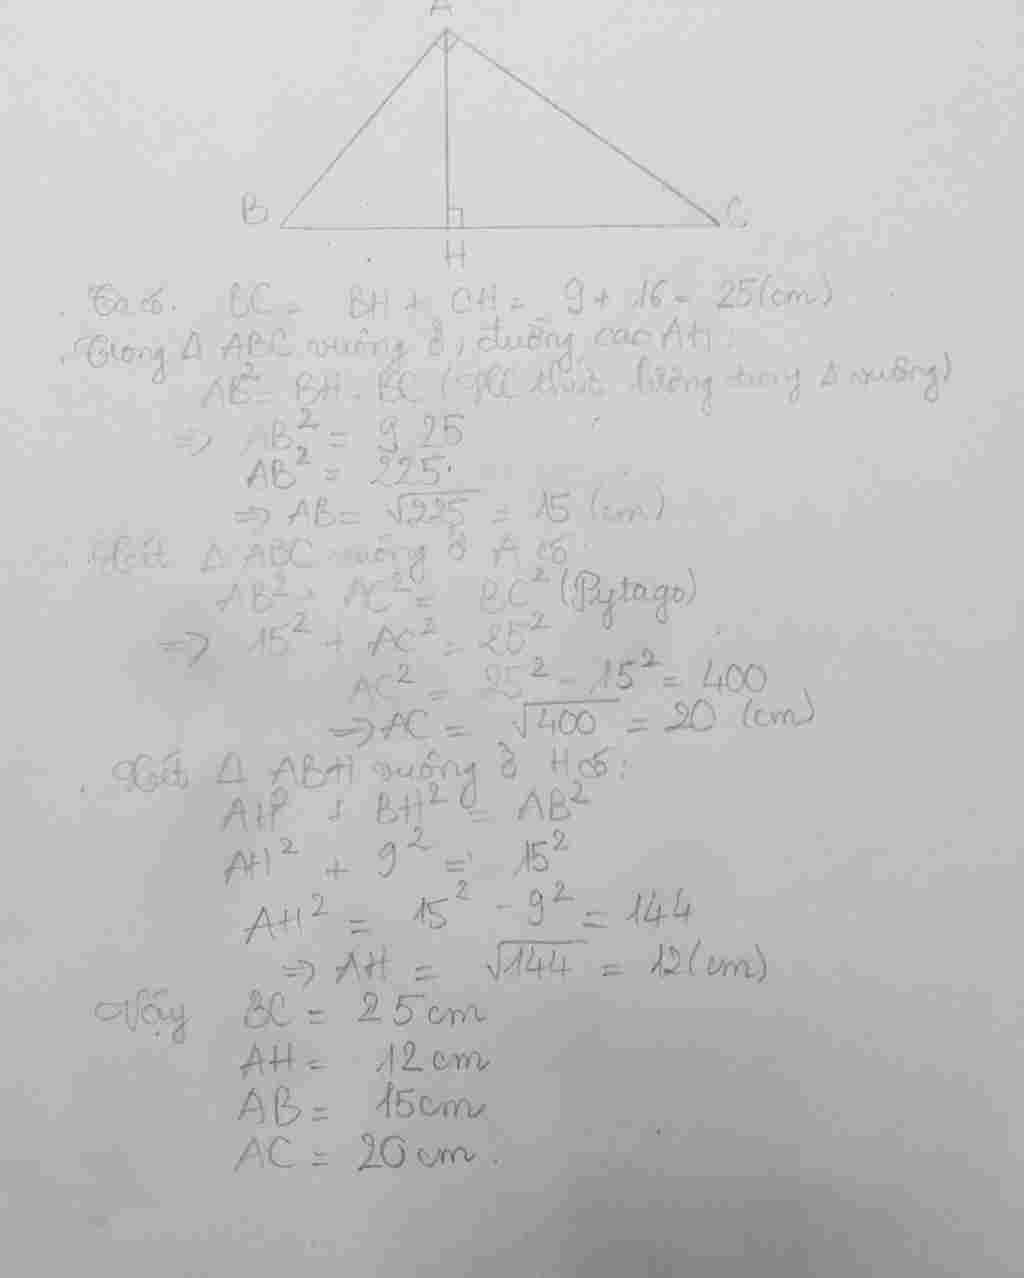 A
B
C
H
Ta có. BC = BH + CH = 9 + 16 = 25 (cm)
Trong Δ ABC vuông ở, đường cao AH:
AB² = BH . BC ( lượng trong Δ vuông)
=> AB² = 9 25
AB² = 225.
=> AB = √225 = 15 (cm)
Xét Δ ABC vuông ở A có
AB² + AC² = BC² (Pytago)
=> 15² + AC² = 25²
AC² = 25² - 15² = 400
=> AC = √400 = 20 (cm)
Xét Δ ABH vuông ở H có:
AH² + BH² = AB²
AH² + 9² = 15²
AH² = 15² - 9² = 144
=> AH = √144 = 12 (cm)
Vậy BC = 25 cm
AH = 12 cm
AB = 15 cm
AC = 20 cm.